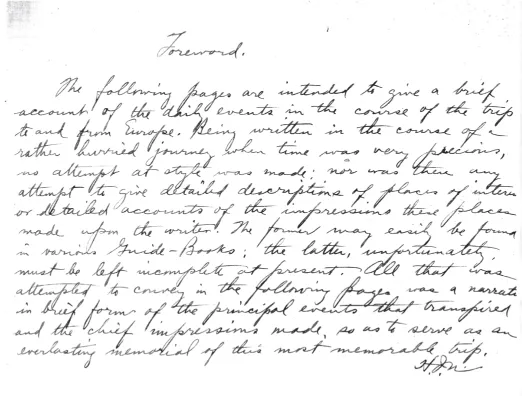 Foreword.
The following pages are intended to give a brief
account of the daily events in the course of the trip
to and from Europe. Being written in the course of a
rather hurried journey when time was very precious,
no attempt at style was made; nor was there any
attempt to give detailed descriptions of places of interes
or detailed accounts of the impressions these places
made upon the writer. The former may easily be found
in various Guide-Books; the latter, unfortunately,
must be left incomplete at present. All that was
attempted to convey in the following pages was a narrati
in brief form of the principal events that transpired
and the chief impressions made, so as to serve as an
everlasting memorial of this most memorable trip.